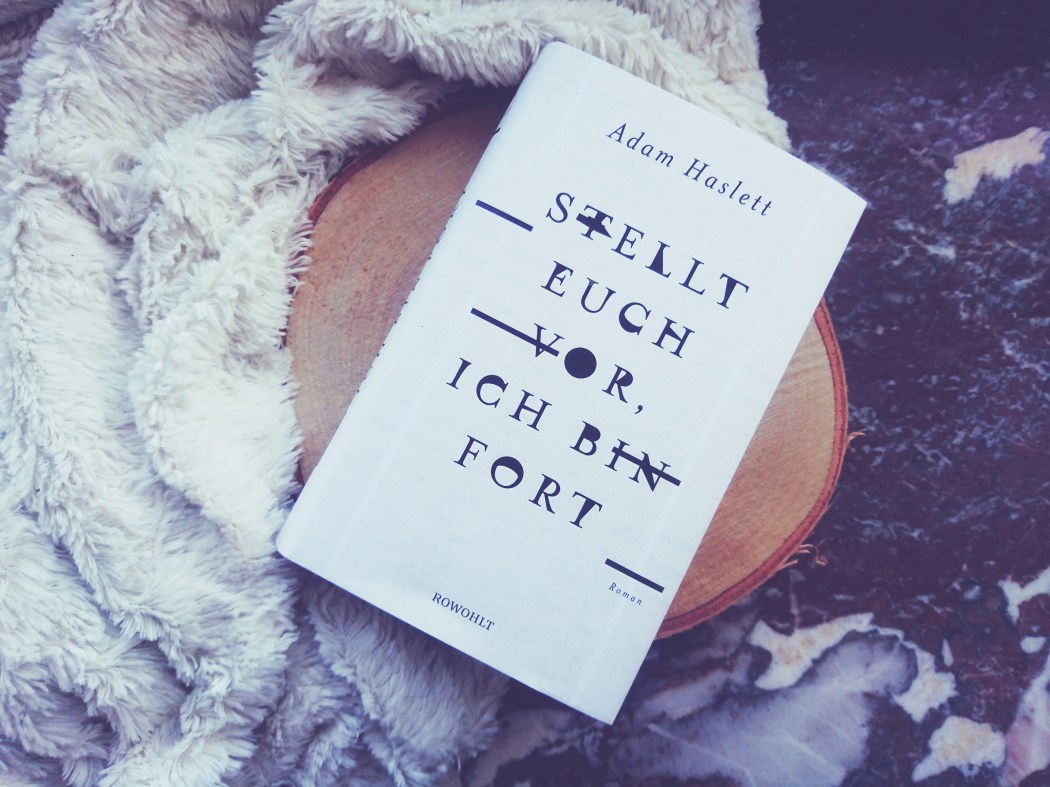 Adam Haslett
STELLT
EUCH
VOR,
ICH BIN
FORT
Roman
ROWOHLT